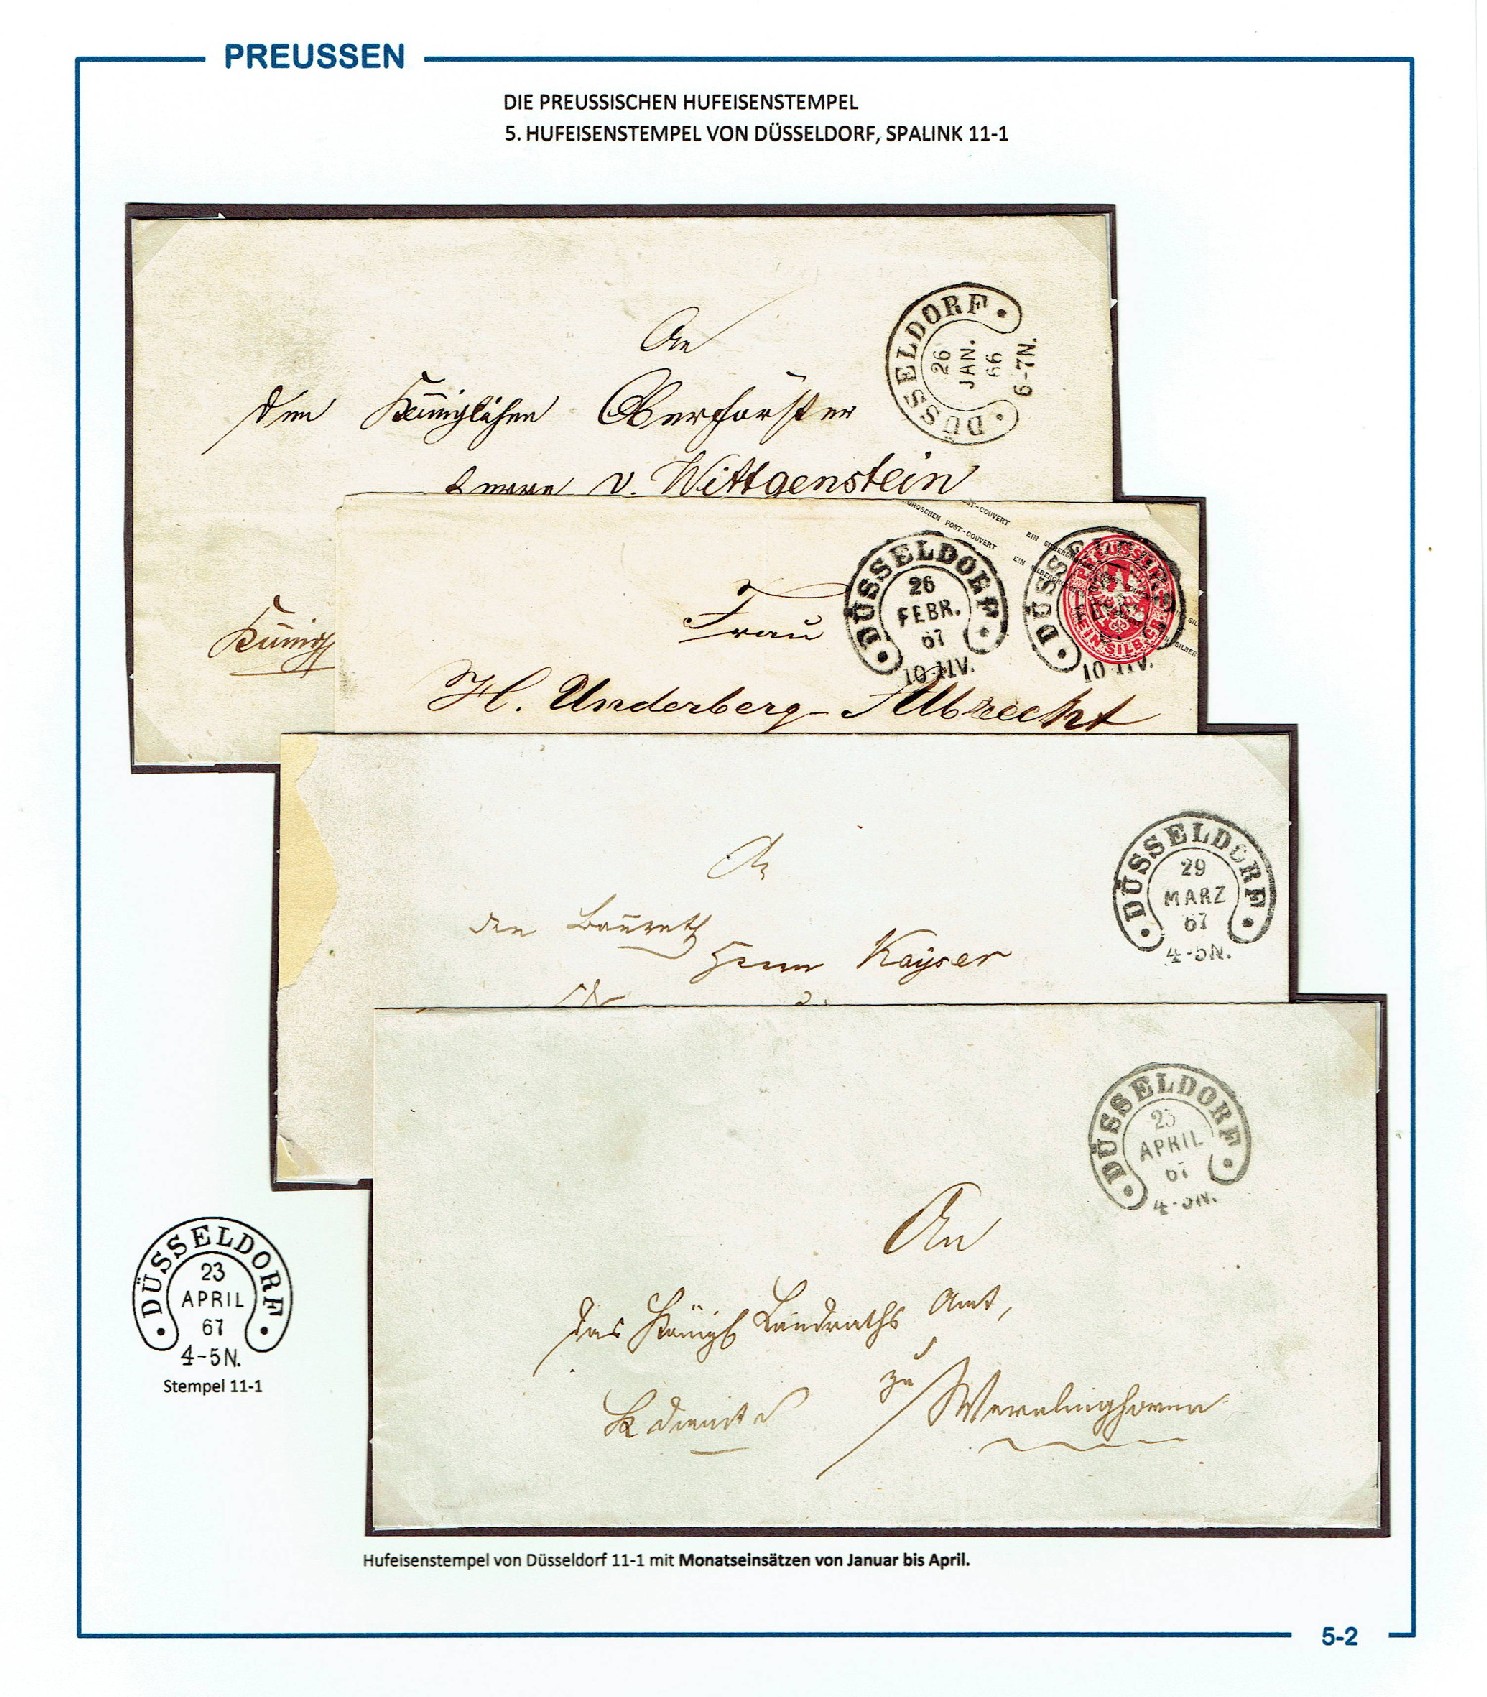 PREUSSEN
DIE PREUSSISCHEN HUFEISENSTEMPEL
5. HUFEISENSTEMPEL VON DÜSSELDORF, SPALINK 11-1
An
den Königlichen Oberförster
Herrn v. Wittgenstein
DÜSSELDORF
26
JAN.
66
6-7N.
GROSCHEN POST-COUVERT
EIN SILBER
Frau
H. Underberg-Albrecht
DÜSSELDORF
26
FEBR.
67
10-11V.
DÜSSELDORF
10-11V.
PREUSSEN
EIN SILBGR.
An
den Baurath
Herrn Kayser
DÜSSELDORF
29
MARZ
67
4-5N.
DÜSSELDORF
23
APRIL
67
4-5N.
An
das Königl Landraths Amt,
zu Wevelinghoven
DÜSSELDORF
23
APRIL
67
4-5N.
Stempel 11-1
Hufeisenstempel von Düsseldorf 11-1 mit Monatseinsätzen von Januar bis April.
5-2